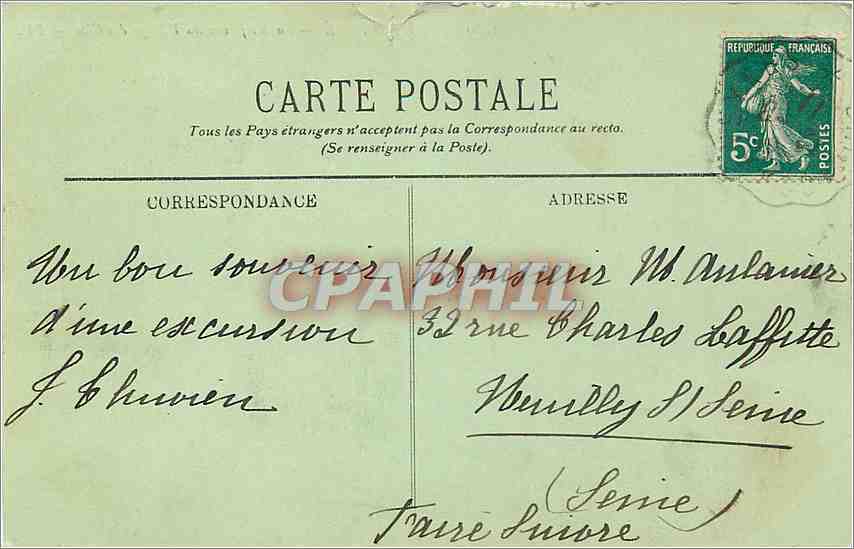 CARTE POSTALE
Tous les Pays étrangers n'acceptent pas la Correspondance au recto.
(Se renseigner à la Poste).
REPUBLIQUE FRANÇAISE
5c
POSTES
CORRESPONDANCE
ADRESSE
Un bon souvenir
d'une excursion
J. Thuvien
Monsieur M. Aulanier
32 rue Charles Laffitte
Neuilly S/ Seine
(Seine)
Faire Suivre
CPAPHIL